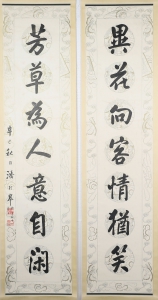 異花向客情猶笑
芳草為人意自閑
辛巳秋